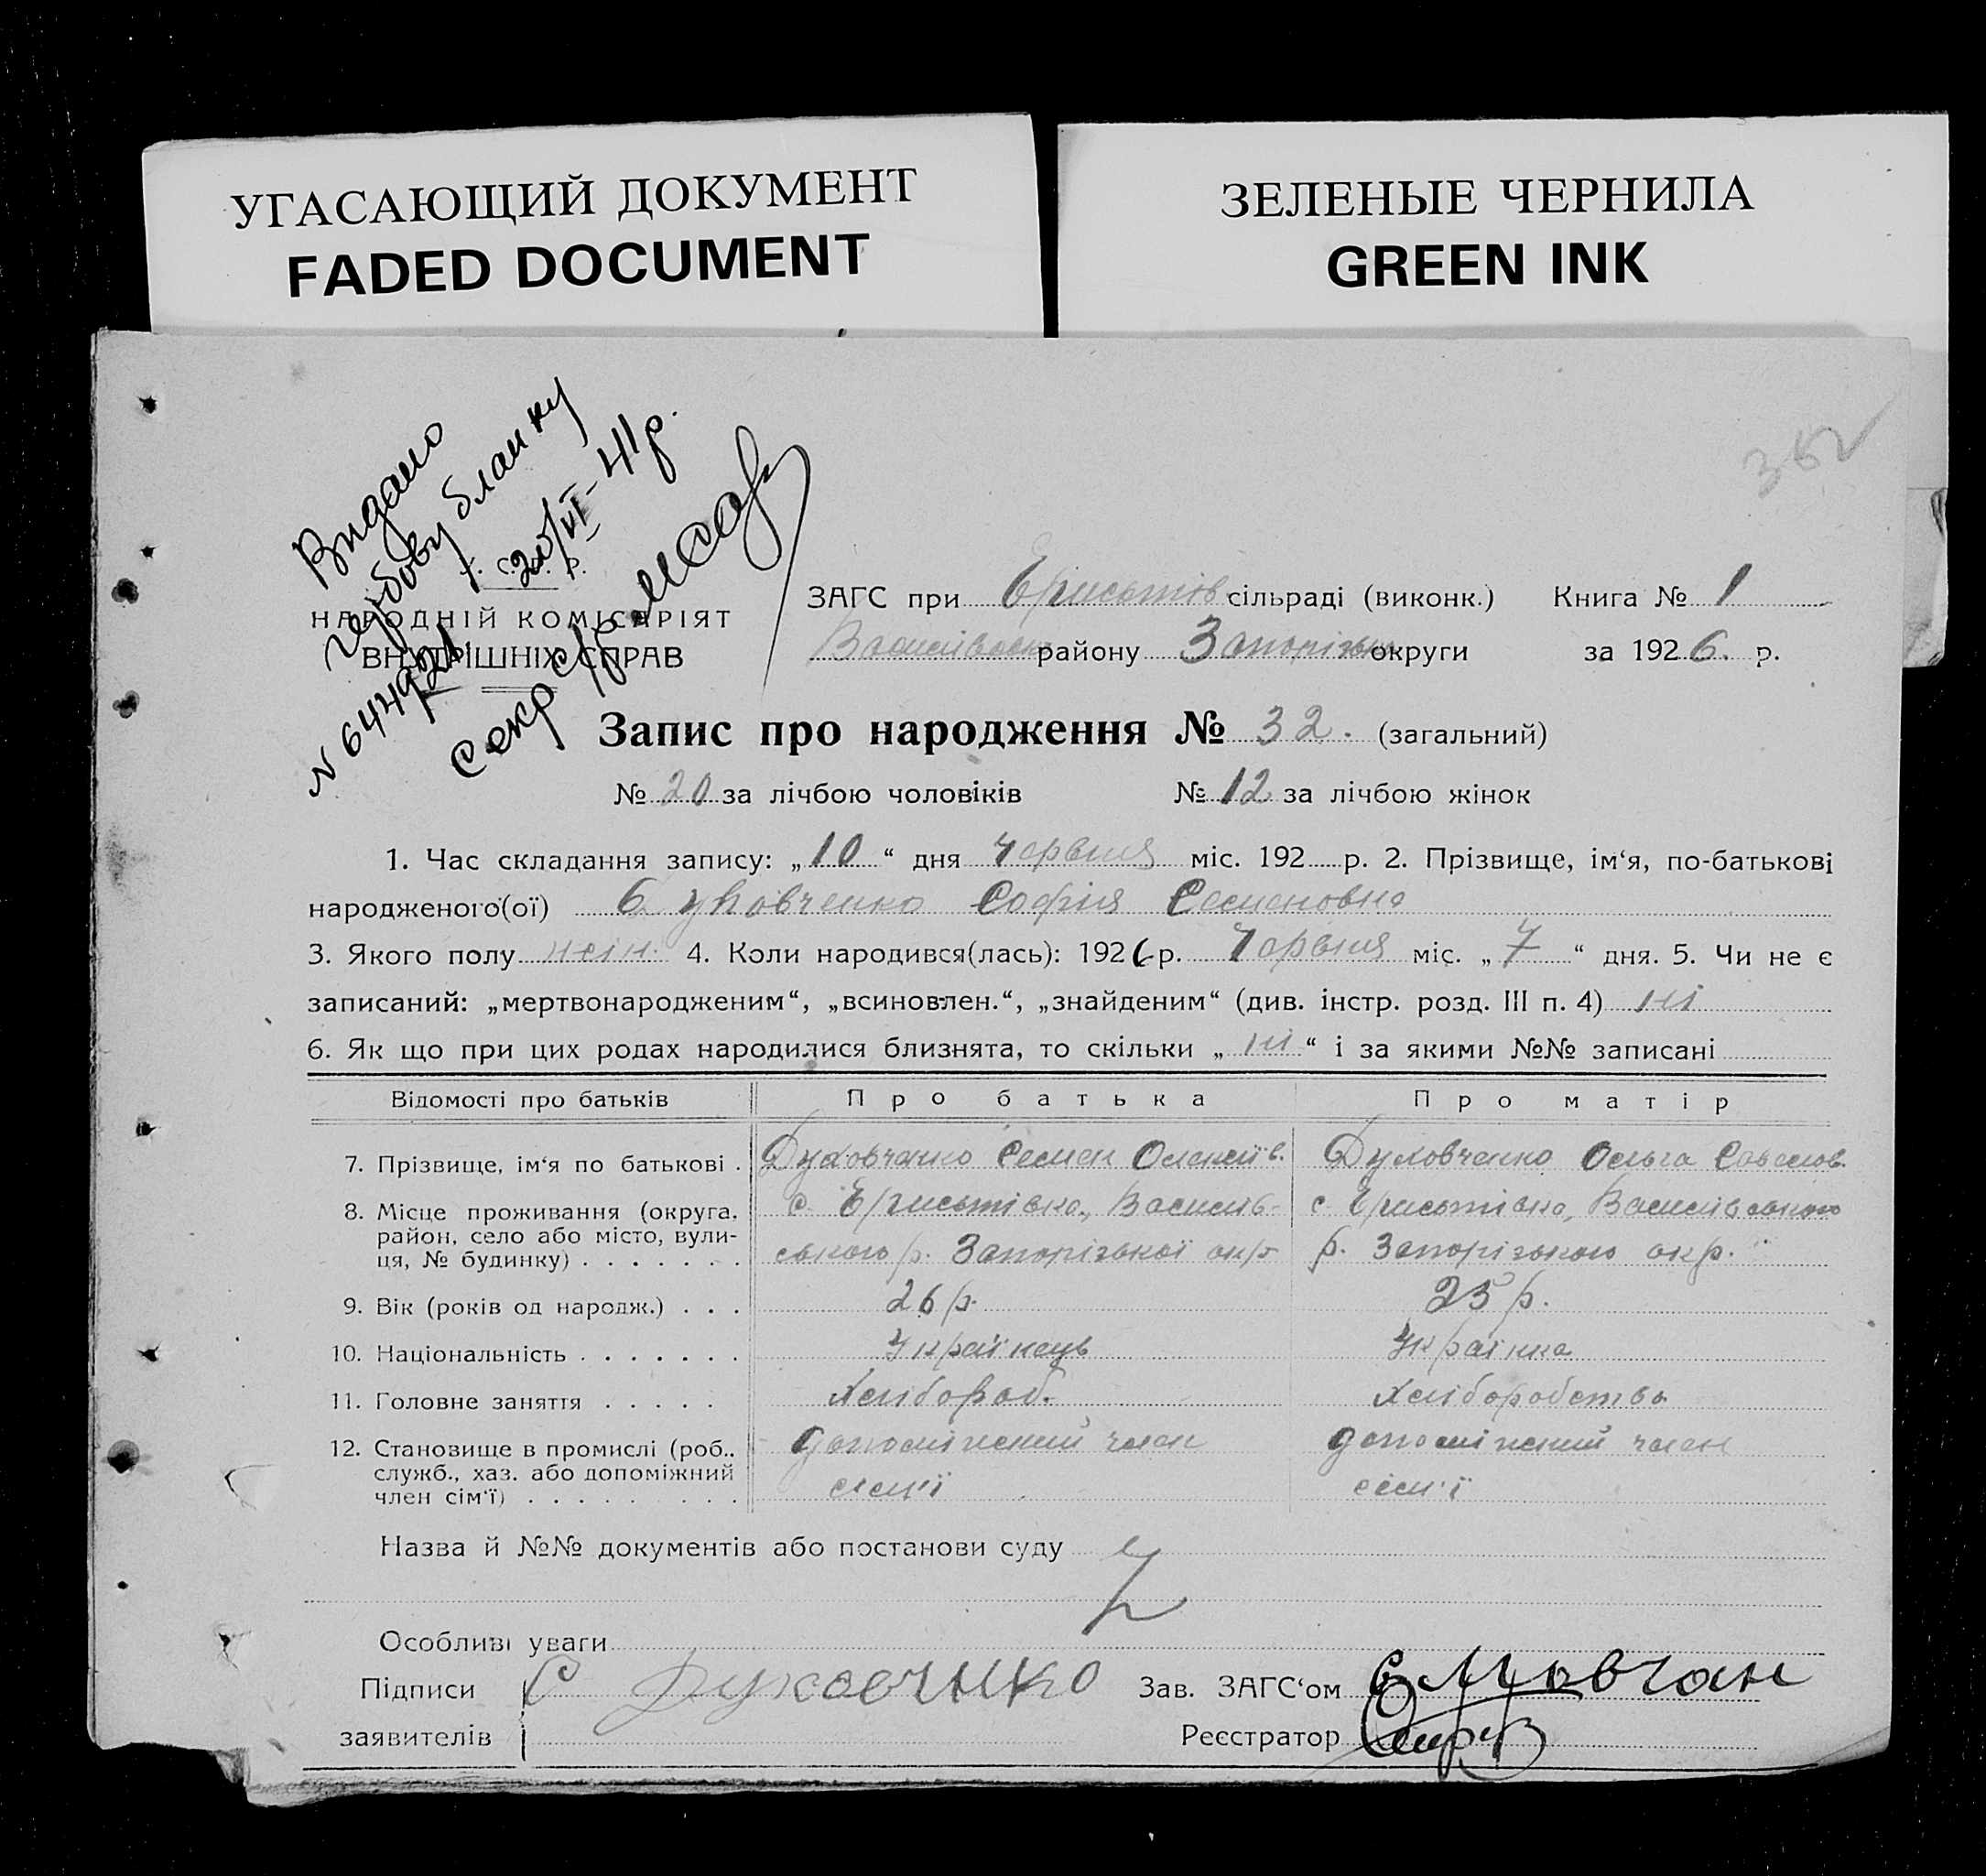 УГАСАЮЩИЙ ДОКУМЕНТ
FADED DOCUMENT
ЗЕЛЕНЫЕ ЧЕРНИЛА
GREEN INK
Видано
гербову бланку
20/VI-41р.
N 644921
секр с/р
НАРОДНІЙ КОМІСАРІЯТ
ВНУТРІШНІХ СПРАВ
ЗАГС при Еристів сільраді (виконк.) Книга № 1
Василівськ району Запорізьк округи за 1926. р.
Запис про народження № 32. (загальний)
№ 20 за лічбою чоловіків № 12 за лічбою жінок
1. Час складання запису: „10“ дня червня міс. 192 р. 2. Прізвище, ім‘я, по-батькові
народженого(ої) Софія Семеновна
3. Якого полу жін. 4. Коли народився(лась): 1926 р. червня міс. „7“ дня. 5. Чи не є
записаний: „мертвонародженим“, „всиновлен.“, „знайденим“ (див. інстр. розд. III п. 4) ні
6. Як що при цих родах народилися близнята, то скільки „ні“ і за якими №№ записані
Відомості про батьків Про батька Про матір
7. Прізвище, ім‘я по батькові . Духовченко Семен Олексіїв. Духовченко Ольга
8. Місце проживання (округа, район, село або місто, вули-ця, № будинку) . . . . . . .
с. Еристівка, Василів-
ського р. Запорізької окр
с Еристівка, Василівського
р. Запорізького окр.
9. Вік (років од народж.) . . . 26 р. 25 р.
10. Національність . . . . . . . Українець Українка
11. Головне заняття . . . . . Хлібороб. Хліборобство
12. Становище в промислі (роб., служб., хаз. або допоміжний член сім‘ї) . . . . . . . .
допоміжний член
сем'ї
допоміжний член
сем'ї
Назва й №№ документів або постанови суду
Особливі уваги
Підписи С Духовченко Зав. ЗАГС‘ом Мовчан
заявителів Реєстратор